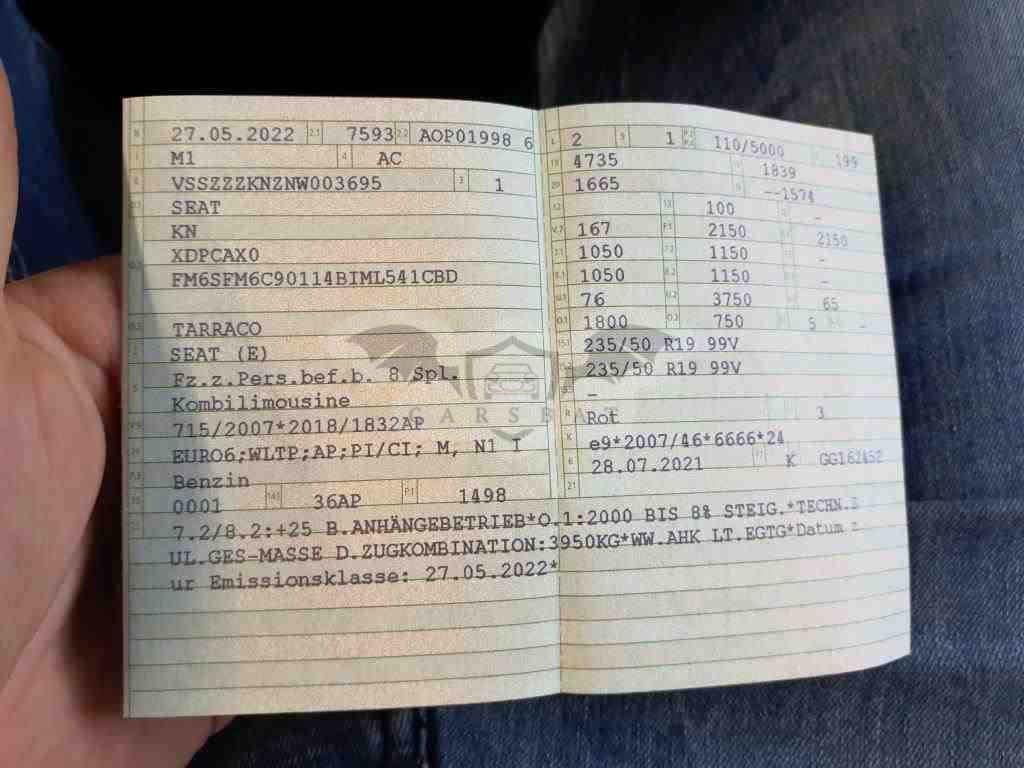 B 27.05.2022 2.1 7593 2.2 AOP01998 6
J M1 4 AC
E VSSZZZKNZNW003695 3 1
D.1 SEAT
KN
XDPCAX0
FM6SFM6C90114BIML541CBD
D.3 TARRACO
2 SEAT (E)
5 Fz.z.Pers.bef.b. 8 Spl.
Kombilimousine
V.9 715/2007*2018/1832AP
14 EURO6;WLTP;AP;PI/CI; M, N1 I
P.3 Benzin
10 0001 14.1 36AP P.1 1498
22 7.2/8.2:+25 B.ANHÄNGEBETRIEB*O.1:2000 BIS 8% STEIG.*TECHN.Z
UL.GES-MASSE D.ZUGKOMBINATION:3950KG*WW.AHK LT.EGTG*Datum z
ur Emissionsklasse: 27.05.2022*
L 2 9 1 P.2 P.4 110/5000 T 199
18 4735 19 1839
20 1665 G --1574
12 - 13 100 -
V.7 167 F.1 2150 2150
7.1 1050 7.2 1150 -
8.1 1050 8.2 1150 -
U.1 76 U.2 3750 65
O.1 1800 O.2 750 5 -
15.1 235/50 R19 99V
15.2 235/50 R19 99V
-
R Rot 3
K e9*2007/46*6666*24
6 28.07.2021 17 K GG162452
21
CARSBA